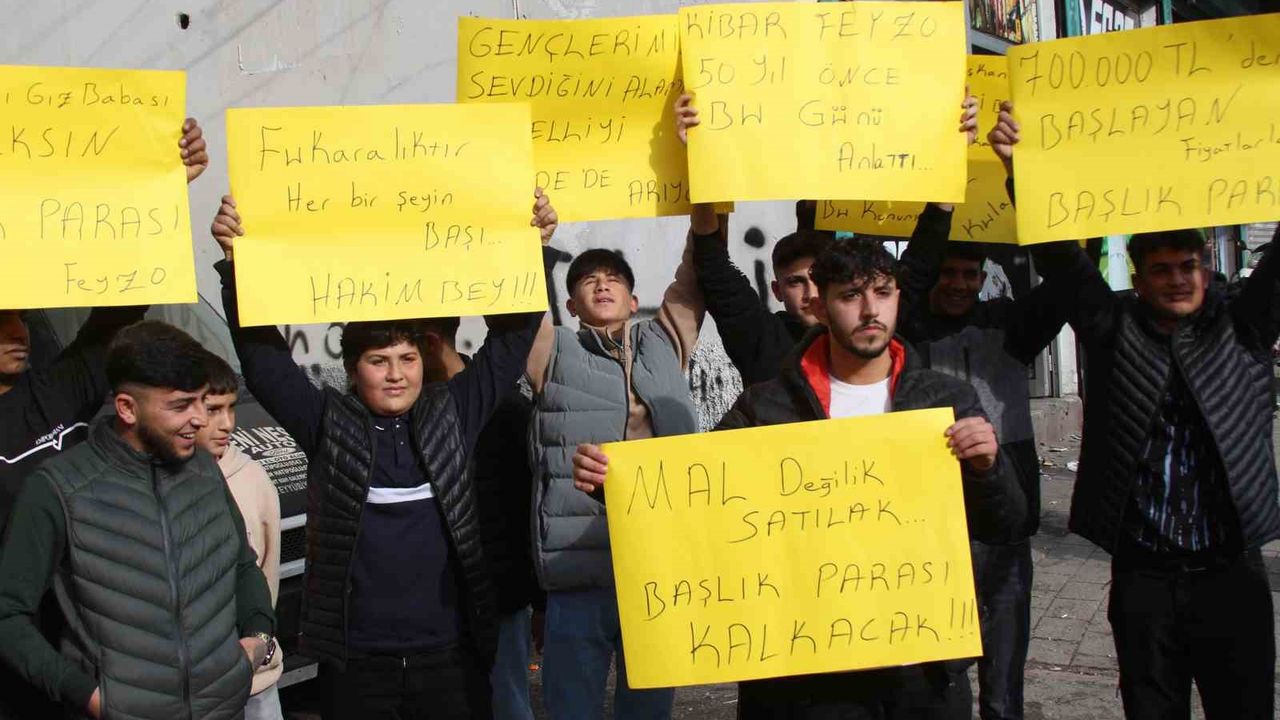 Gız Babası
PARASI
Feyzo
Fukaralıktır
Her bir şeyin
BAŞI...
HAKİM BEY!!!
GENÇLERİMİ
SEVDİĞİNİ
ELLİYİ
DE'DE
KİBAR FEYZO
50 Yıl ÖNCE
BU GÜNÜ
Anlattı...
BU
700.000 TL'den
BAŞLAYAN
Fiyatlarla
BAŞLIK
MAL Değilik
SATILAK...
BAŞLIK PARASI
KALKACAK!!!